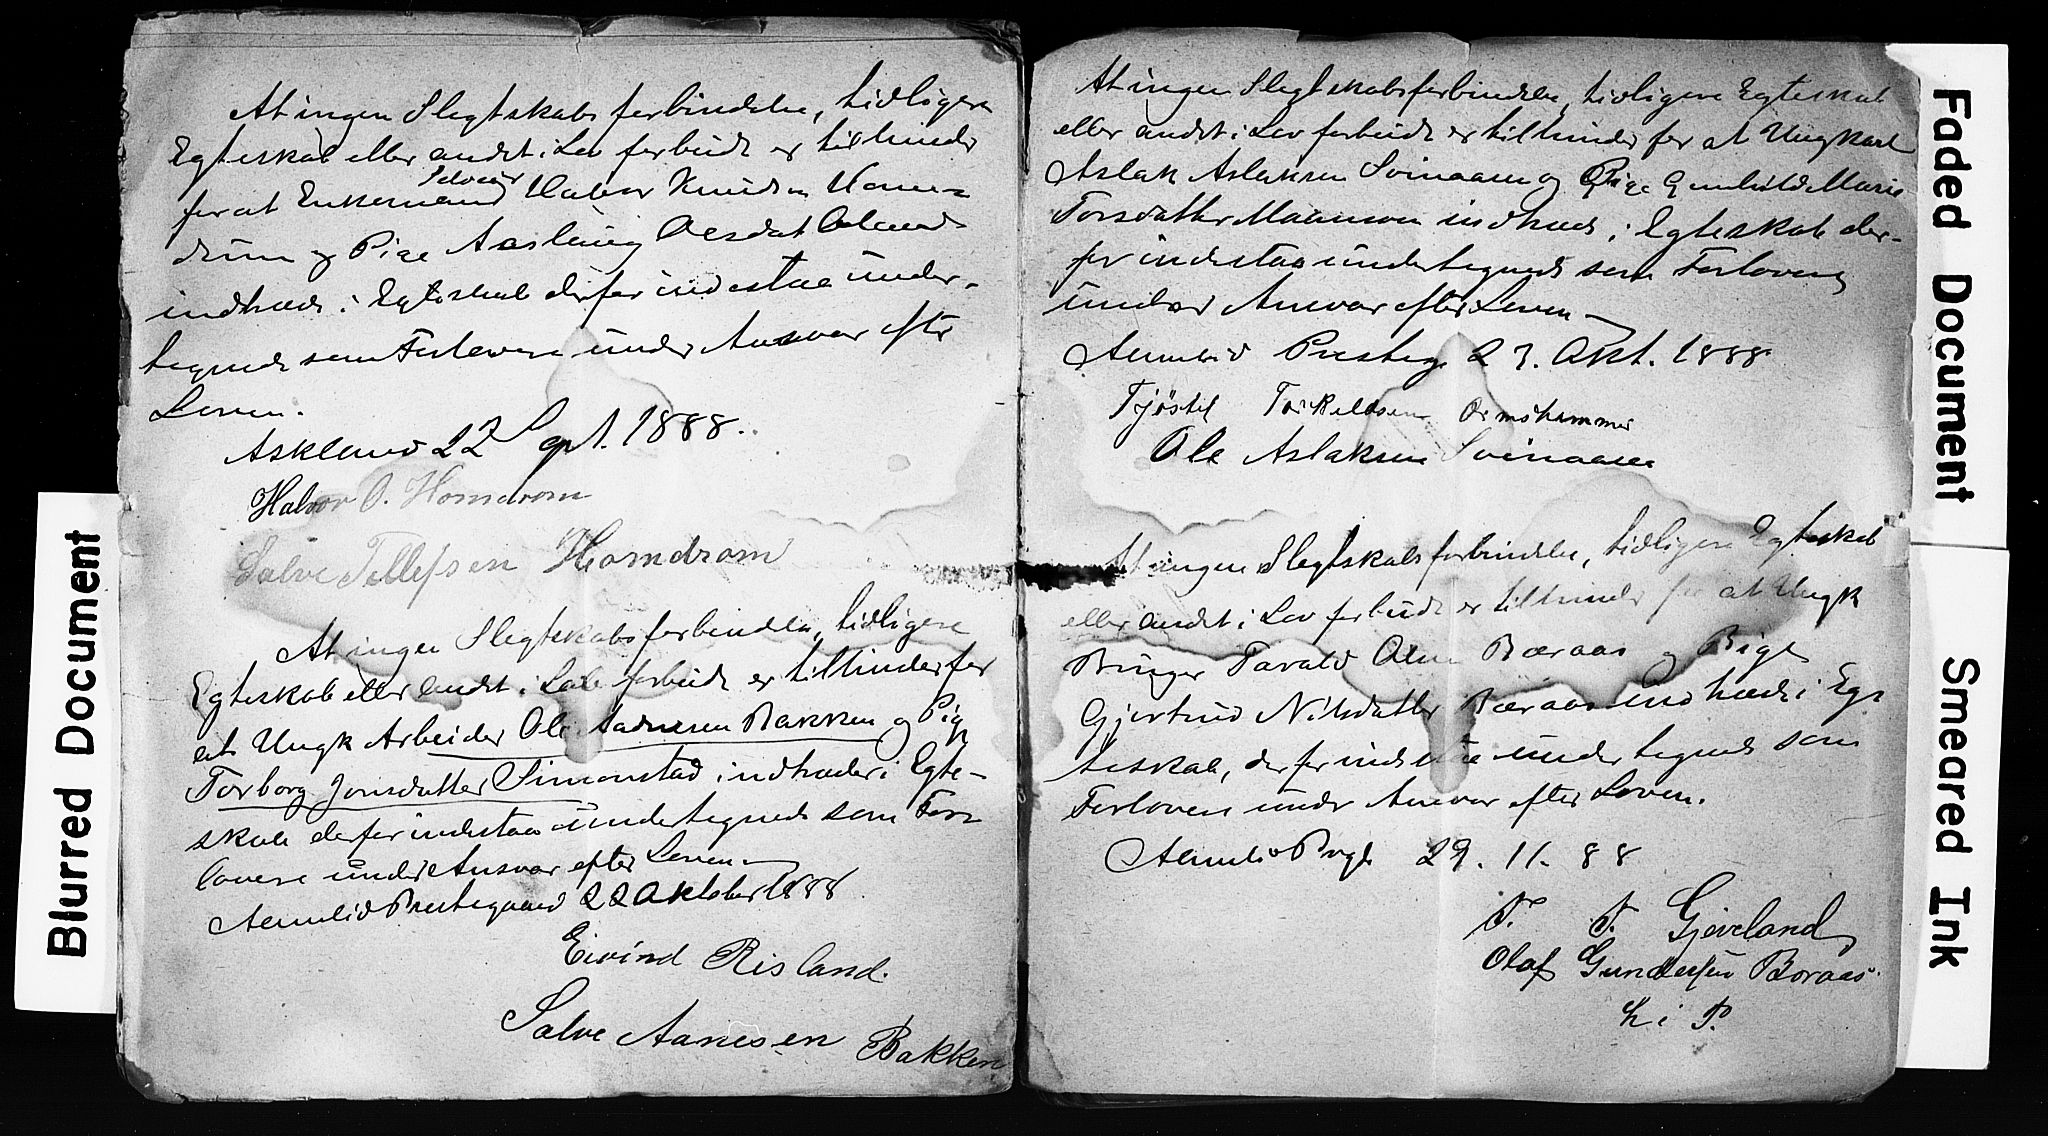 At ingen Slegtskabsforbindelse, tidligere
Egteskab eller andet i Lov forbudt er til hinder
for at Enkemand Selveier Halvor Knudsen Hom-
drum og Pige Aaslaug Olsdat
indtræde i Egteskab derfor indestaa under-
tegnede som Forlovere under Ansvar efter
Loven.
Askland 22 Sept. 1888.
Halvor O. Homdrom
Salve Tellefsen Homdrom
At ingen Slegtskabsforbindelse, tidligere
Egteskab eller andet i Lov forbudt er til hinder for
at Ungk Arbeider Ole Aadnesen Bakken og Pige
Torborg Jonsdatter Simonstad indtræder i Egte-
skab derfor indestaa undertegnede som For-
lovere under Ansvar efter Loven
Aamlid Prestegaard 22 Oktober 1888
Eivind Risland.
Salve Aanesen Bakken
At ingen Slegtskabsforbindelse, tidligere Egteskab
eller andet i Lov forbudt er til hinder for at Ungkarl
Aslak Aslaksen Svinaasen og Pige Gunhild Marie
Torsdatter indtræde i Egteskab der-
for indestaa undertegnede som Forlovere
under Ansvar efter Loven
Aamlid Presteg 23. Okt. 1888
Tjøstel Torkeldsen Ormshammer
Ole Aslaksen Svinaasen
At ingen Slegtskabsforbindelse, tidligere Egteskab
eller andet i Lov forbudt er til hinder for at Ungk
Bruger Tarald Olsen Bæraas og Pige
Gjertrud Nilsdatter Bæraas indtræde i Eg-
teskab, derfor indestaa undertegnede som
Forlovere under Ansvar efter Loven.
Aamlid Prgd 29. 11. 88
T. T. Gjeveland
Olaf Gundersen Boraas
h i P.
Blurred Document
Faded Document
Smeared Ink